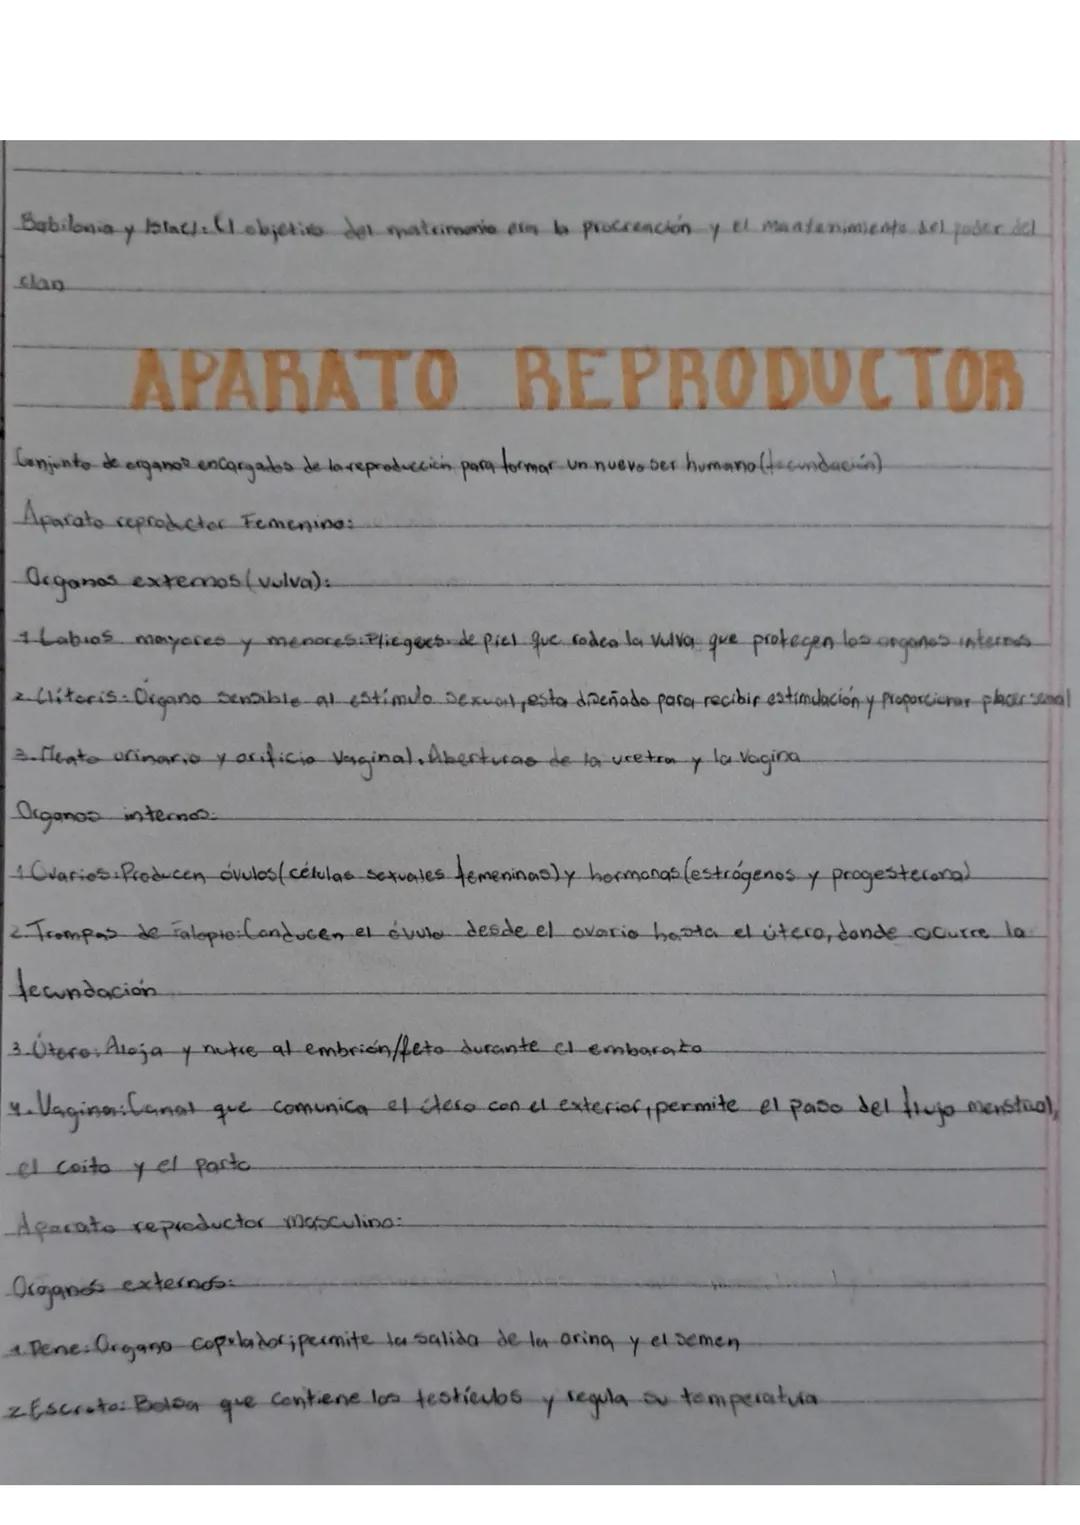 Babilonia y Israel: El objetivo del matrimonio era la procreación y el mantenimiento del poder del
clan
APARATO REPRODUCTOR
Conjunto de organos encargados de la reproducción para formar un nuevo ser humano (fecundación)
Aparato reproductor Femenino:
Organos externos (vulva):
1 Labios mayores y menores: Pliegues de piel que rodea la vulva que protegen los organos internos
2. Clítoris: Organo sensible al estímulo sexual, esta diseñado para recibir estimulación y proporcionar placer sexual
3. Meato urinario y orificio Vaginal. Aberturas de la uretra y la vagina
Organos internos:
1 Ovarios: Producen óvulos (células sexuales femeninas) y hormonas (estrógenos y progesterona)
2. Trompas de Falopio: Conducen el óvulo desde el ovario hasta el útero, donde ocurre la
fecundación
3. Útero: Aloja y nutre al embrión/feto durante el embarato
4. Vagina: Canal que comunica el útero con el exterior, permite el paso del flujo menstrual,
el coito y el parto
Aparato reproductor masculino:
Organos externos:
1 Pene: Organo copulador; permite la salida de la orina y el semen
2 Escroto: Bolsa que contiene los testículos y regula su temperatura